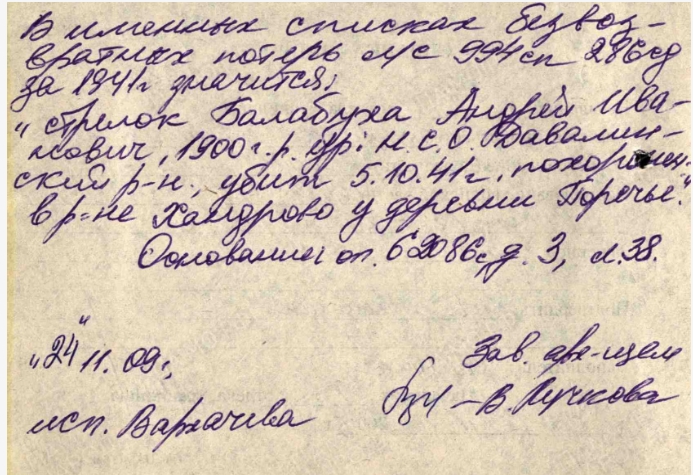 В именных списках безвоз-
вратных потерь л/с 994 сп 286 сд
за 1941г значится:
"стрелок Балабуха Андрей Ива-
нович, 1900г.р. ур: Н.С.О. Давалин-
ский р-н., убит 5.10.41г., похоронен-
в р-не Хандрово у деревни Поречье."
Основание: оп. 62086с, д. 3, л. 38.
"24" 11. 09г,
Зав. арх-щем
В. Пучкова
исп. Вархачева